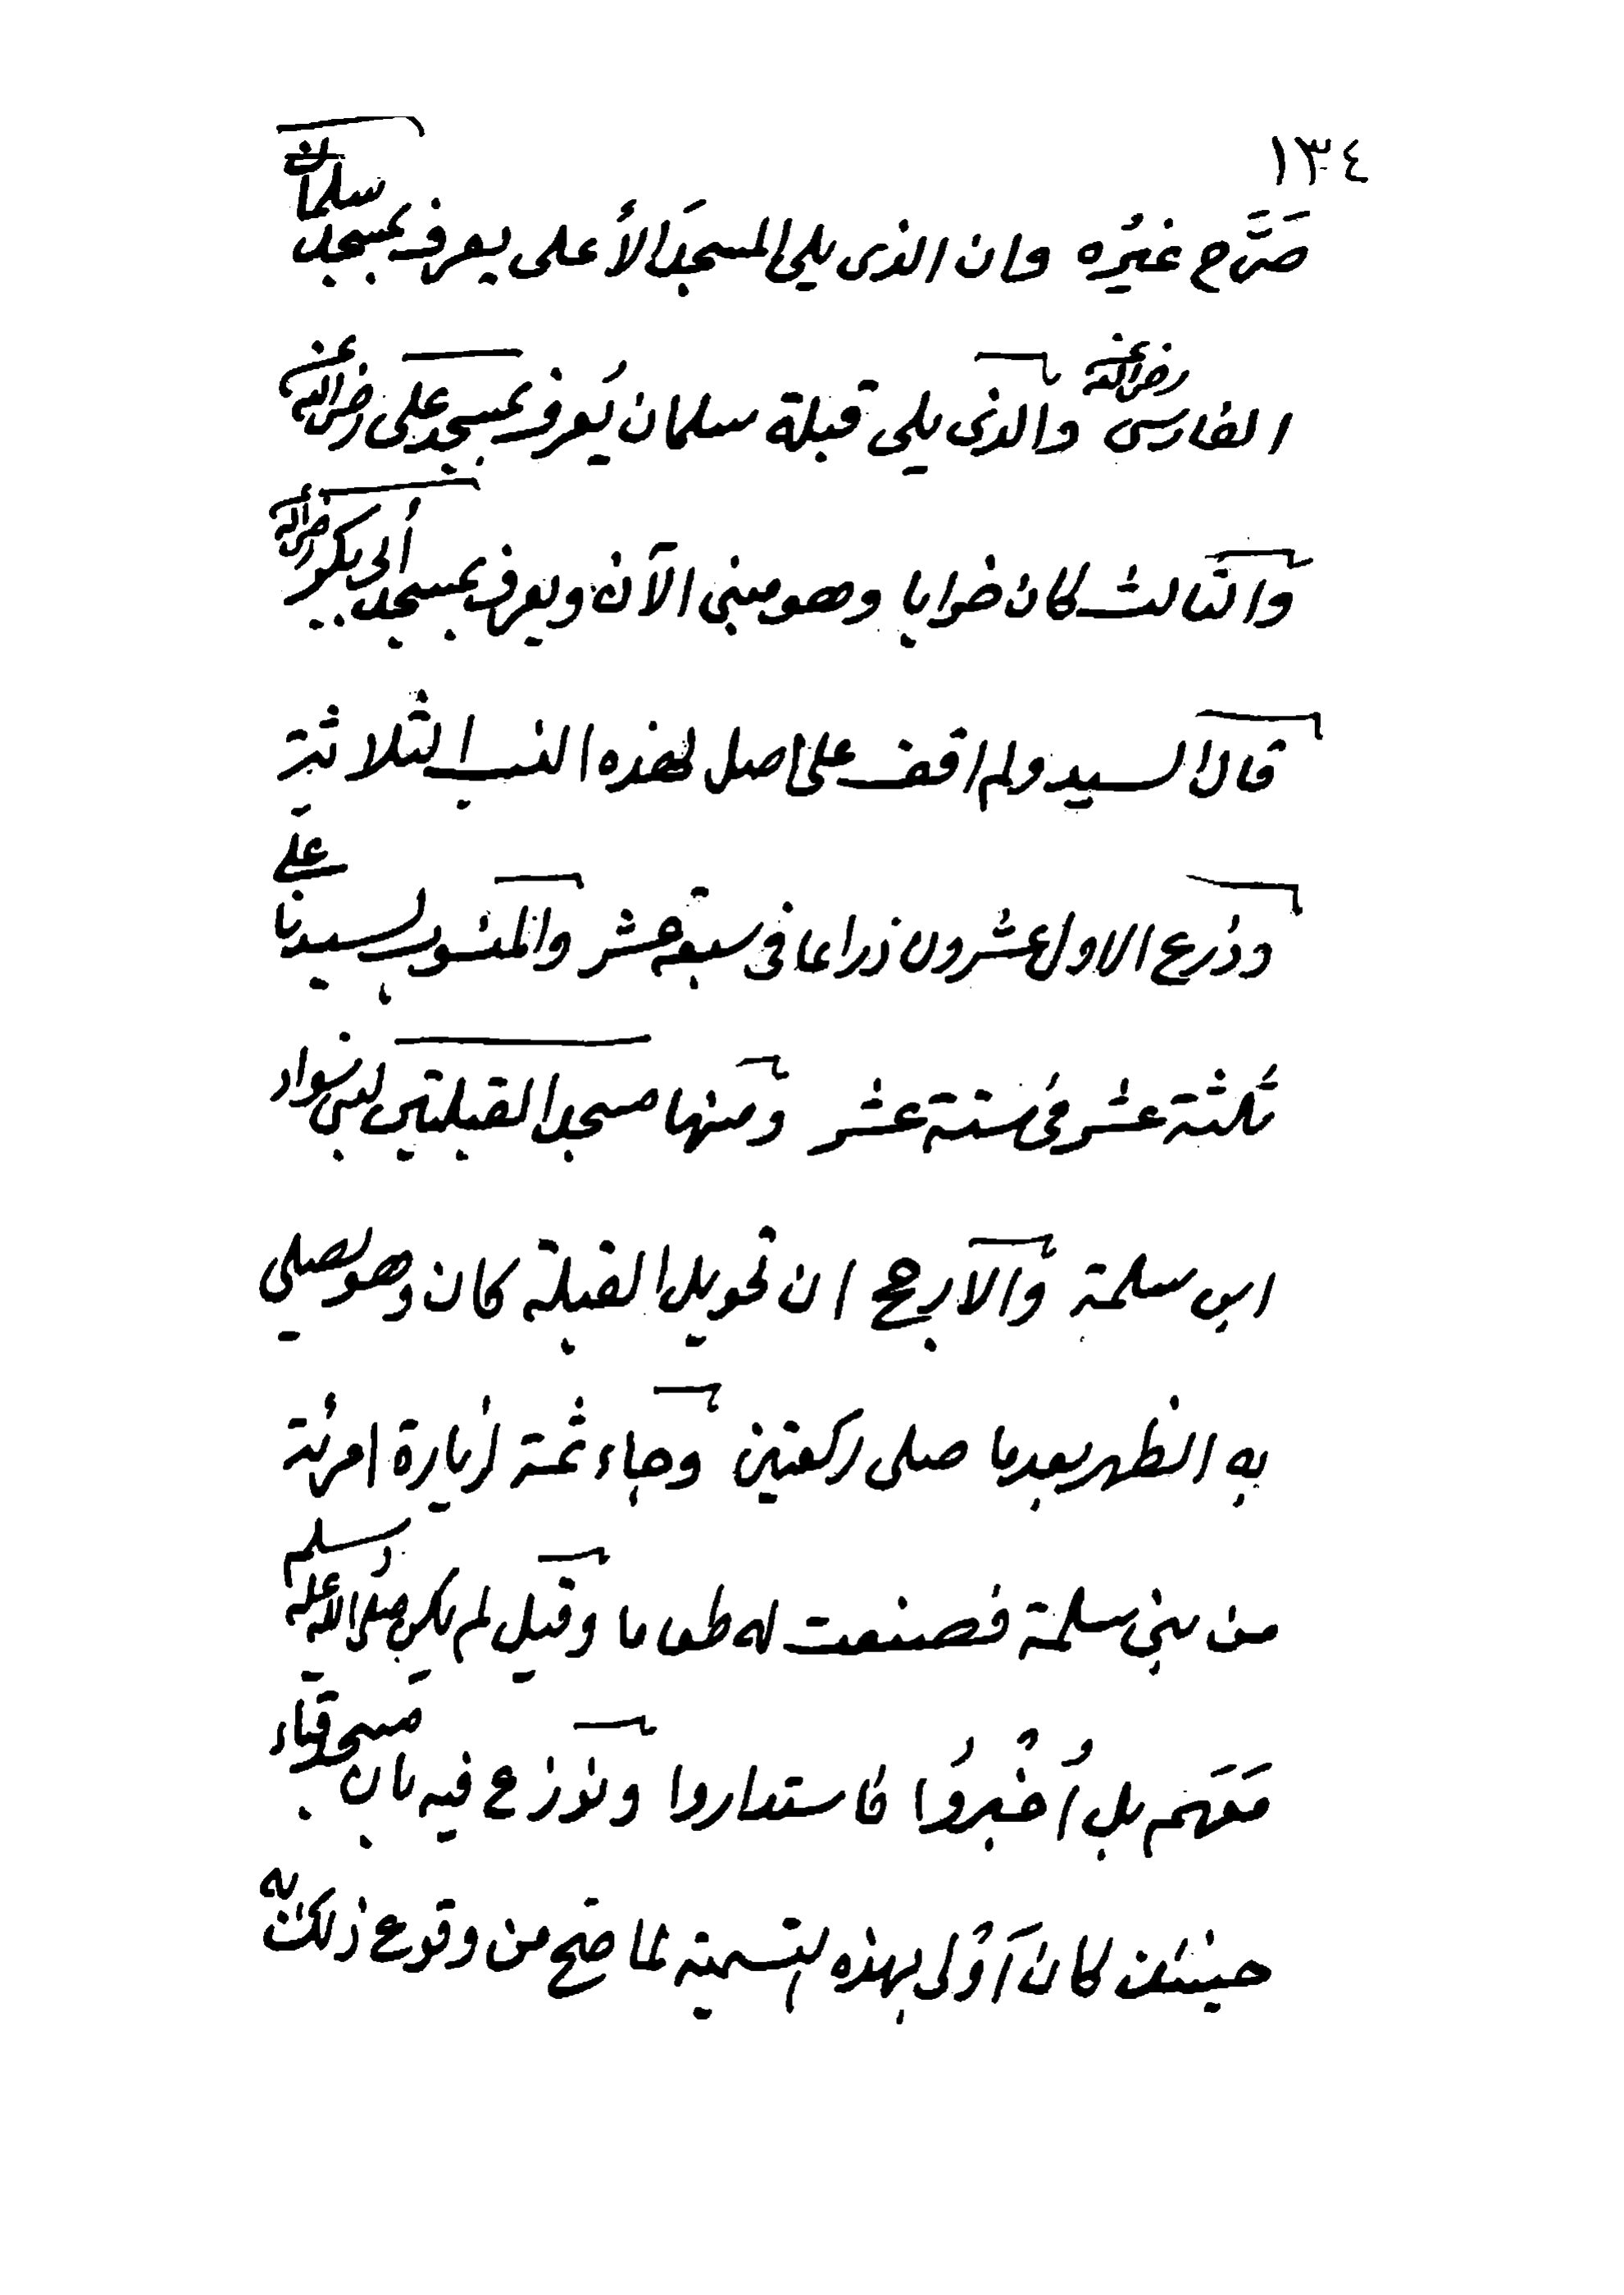 ١٣٤
صَرَّح غيرُه وان الذى يلى المسجدَ الأعلى يعرف بمسجد سلمان
الفارسى رضى الله عنه والذى يلى قبلة سلمان يُعرف بمسجد على رضى الله عنه
والثالث كان خرابا وهو مبنى الآن ويعرف بمسجد أبى بكر رضى الله
قال السيد ولم اقف على اصل لهذه النسب الثلاثة
وذرع الاول عشرون ذراعا فى سبعة عشر والمنسوب لسيدنا على
ثلثة عشر فى ستة عشر ومنها مسجد القبلتين لبنى سواد
ابن سلمة والارجح ان تحويل القبلة كان وهو يصلى
به الظهر بعد ما صلى ركعتين وجاء ثمة لزيارة امرئة
من بنى سلمة فصنعت له طعاما وقيل لم يكن صلى الله عليه وسلم
مَعَهم بل أُخْبِرُوا فاستداروا ونوزع فيه بان مسجد قباء
حينئذ كان أَوْلى بهذه التسمية لما صَحّ من وقوع ذلك به